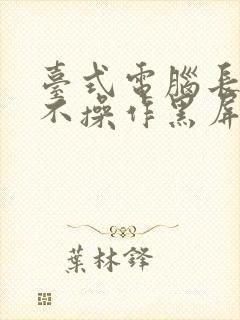 臺式電腦長
不操作黑屏
葉林鋒